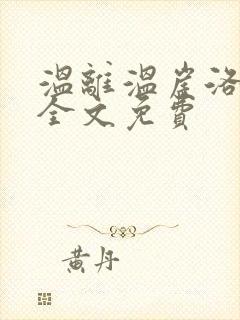 溫離溫崖洛
全文免費
黃丹